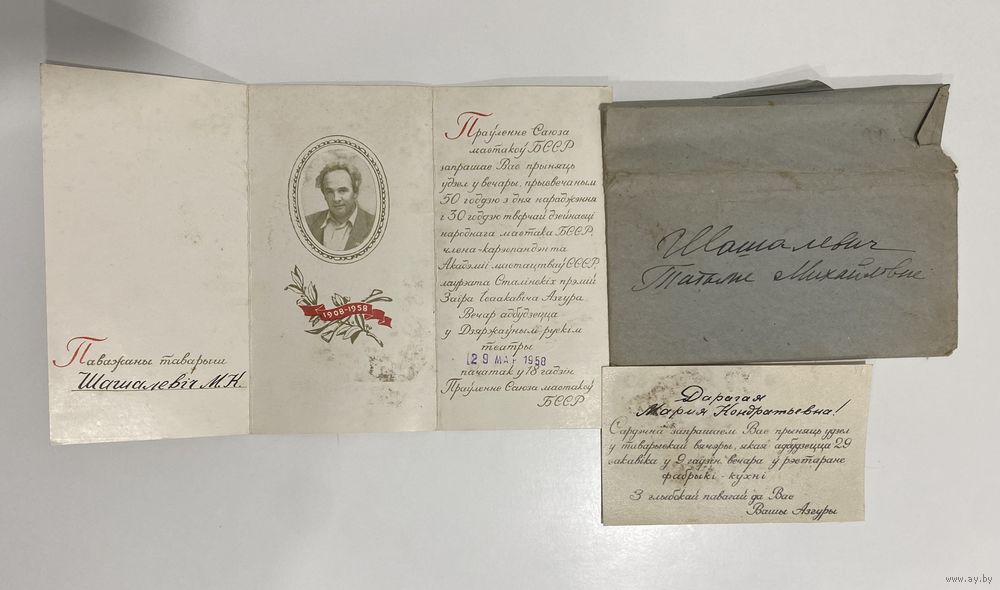 Паважаны таварыш
Шашалевіч М.К.
1908-1958
Праўленне Саюза
мастакоў БССР
запрашае Вас прыняць
удзел у вечары, прысвечаным
50 годдзю з дня нараджэння
і 30 годдзю творчай дзейнасці
народнага мастака БССР,
члена-карэспандэнта
Акадэміі мастацтваў СССР,
лаурэата Сталінскіх прэмій
Заіра Ісаакавіча Азгура.
Вечар адбудзецца
у Дзяржаўным рускім
тэатры
29 МАР 1958
пачатак у 18 гадзін
Праўленне Саюза мастакоў
БССР
Шашалевич
Татьяне Михайловне
Дарагая
Мария Кондратьевна!
Сардэчна запрашаем Вас прыняць удзел
у таварыскай вячэры, якая адбудзецца 29
сакавіка у 9 гадзін вечара ў рэстаране
фабрыкі-кухні
З глыбокай павагай да Вас
Вашы Азгуры
www.ay.by